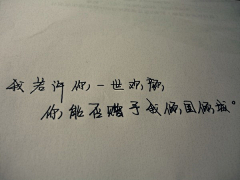 我若许你,一世欢颜,
你,能否赠予我倾国倾城。